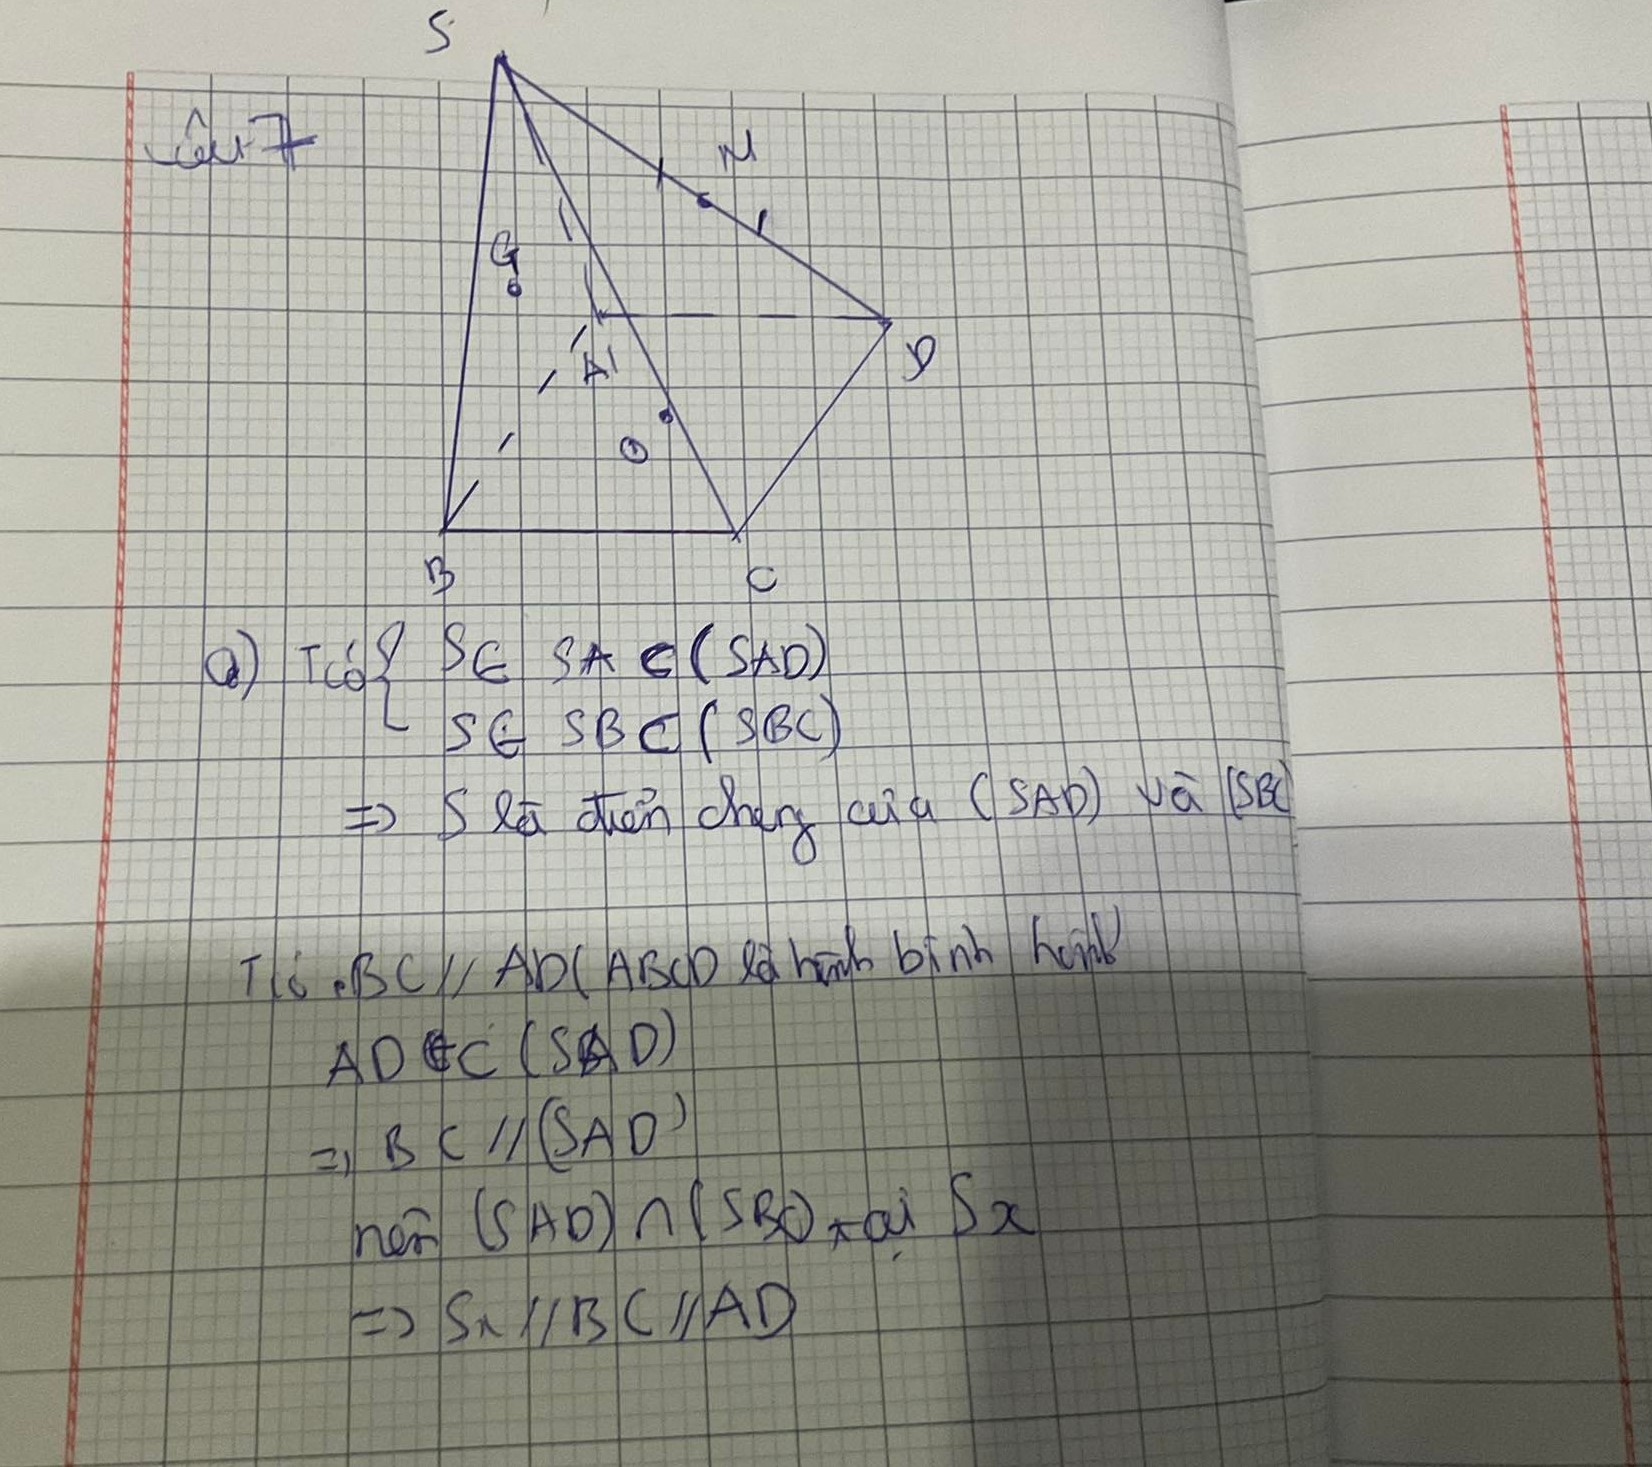 S
Câu 7
M
G
A
D
O
B
C
a) Tcó { S ∈ SA ⊂ (SAD)
S ∈ SB ⊂ (SBC)
=> S là điểm chung của (SAD) và (SBC)
Tcó . BC // AD ( ABCD là hình bình hành
AD ⊂ (SAD)
=> BC // (SAD)
nên (SAD) ∩ (SBC) tại Sx
=> Sx // BC // AD